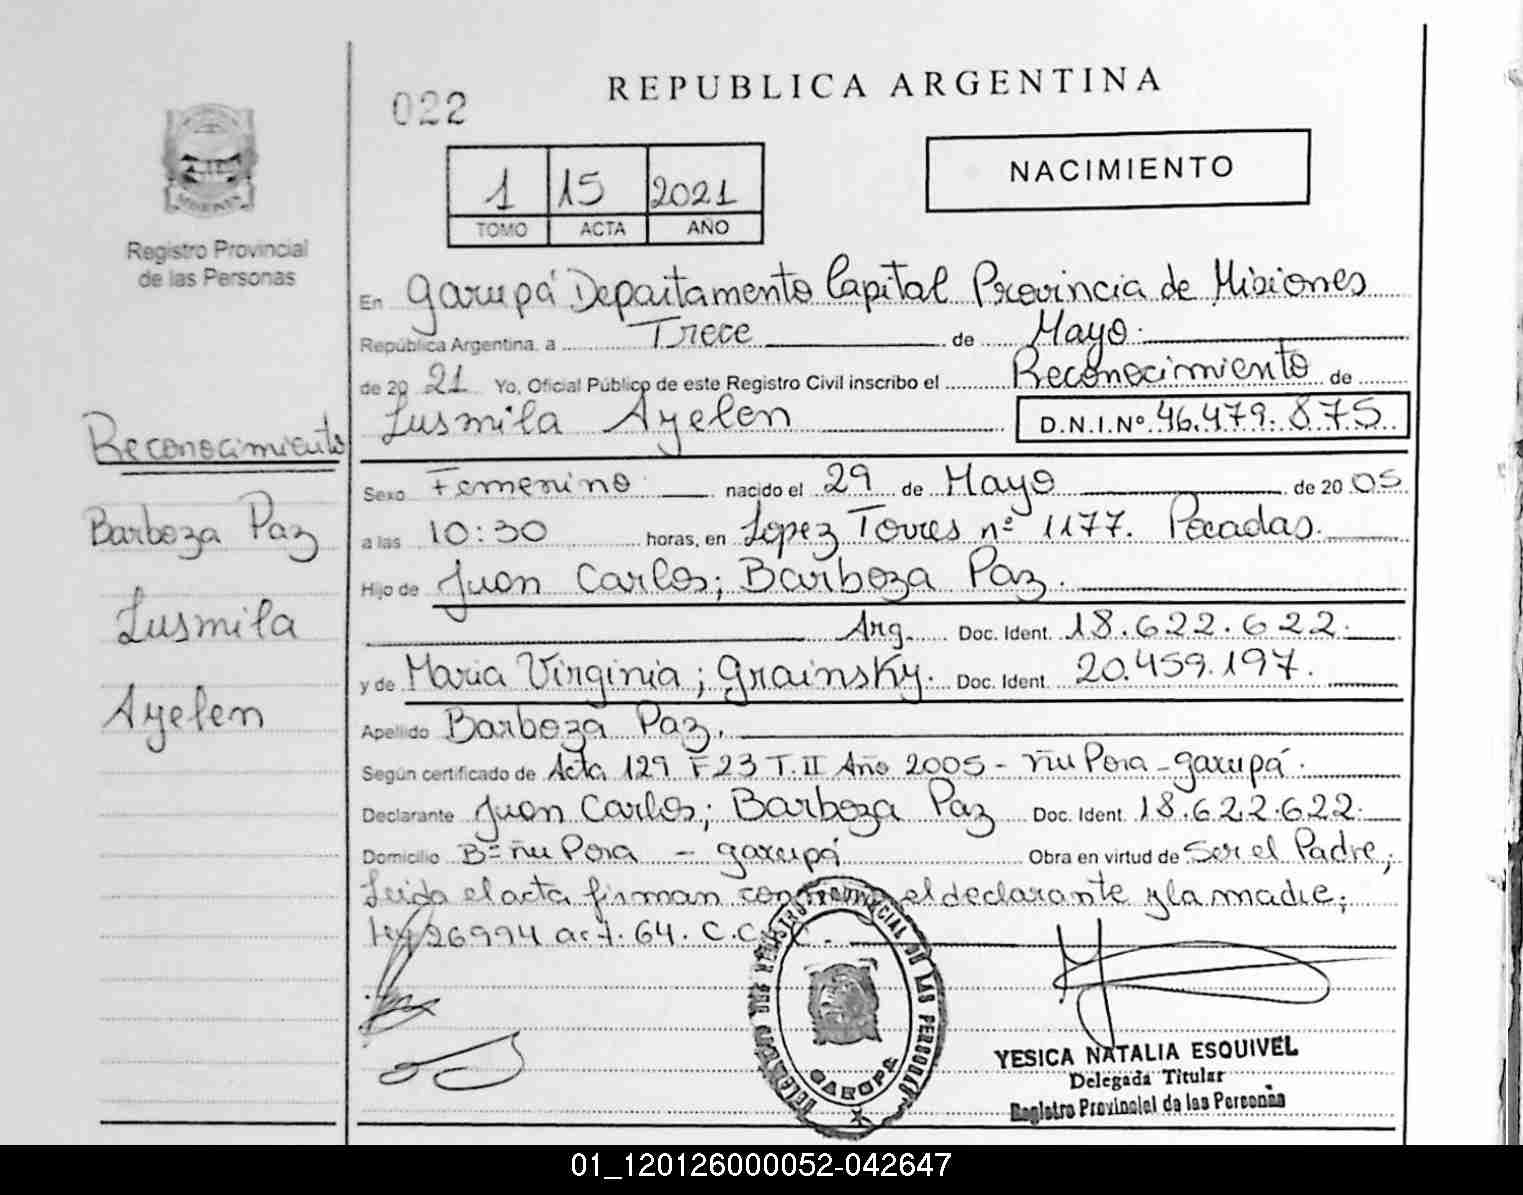 022
REPUBLICA ARGENTINA
NACIMIENTO
1 15 2021
TOMO ACTA AÑO
MISIONES
Registro Provincial
de las Personas
En Garupá Departamento Capital Provincia de Misiones
República Argentina, a Trece de Mayo.
de 20 21 Yo, Oficial Público de este Registro Civil inscribo el Reconocimiento de
Lusmila Ayelen D.N.I.Nº 46.479.875.
Sexo Femenino nacido el 29 de Mayo de 20 05
a las 10:30 horas, en Lopez Torres nº 1177. Posadas.
Hijo de Juan Carlos; Barboza Paz.
Arg. Doc. Ident. 18.622.622.
y de Maria Virginia; Grainsky. Doc. Ident. 20.459.197.
Apellido Barboza Paz.
Según certificado de Acta 129 F 23 T. II Año 2005 - Ñu Pora - Garupá.
Declarante Juan Carlos; Barboza Paz Doc. Ident. 18.622.622.
Domicilio Bº Ñu Pora - Garupá Obra en virtud de Ser el Padre;
Leida el acta firman conmigo el declarante y la madre;
Ley 26994 art. 64. C.C.
Reconocimiento
Barboza Paz
Lusmila
Ayelen
REGISTRO PROVINCIAL DE LAS PERSONAS
GARUPA
YESICA NATALIA ESQUIVEL
Delegada Titular
Registro Provincial de las Personas
01_120126000052-042647